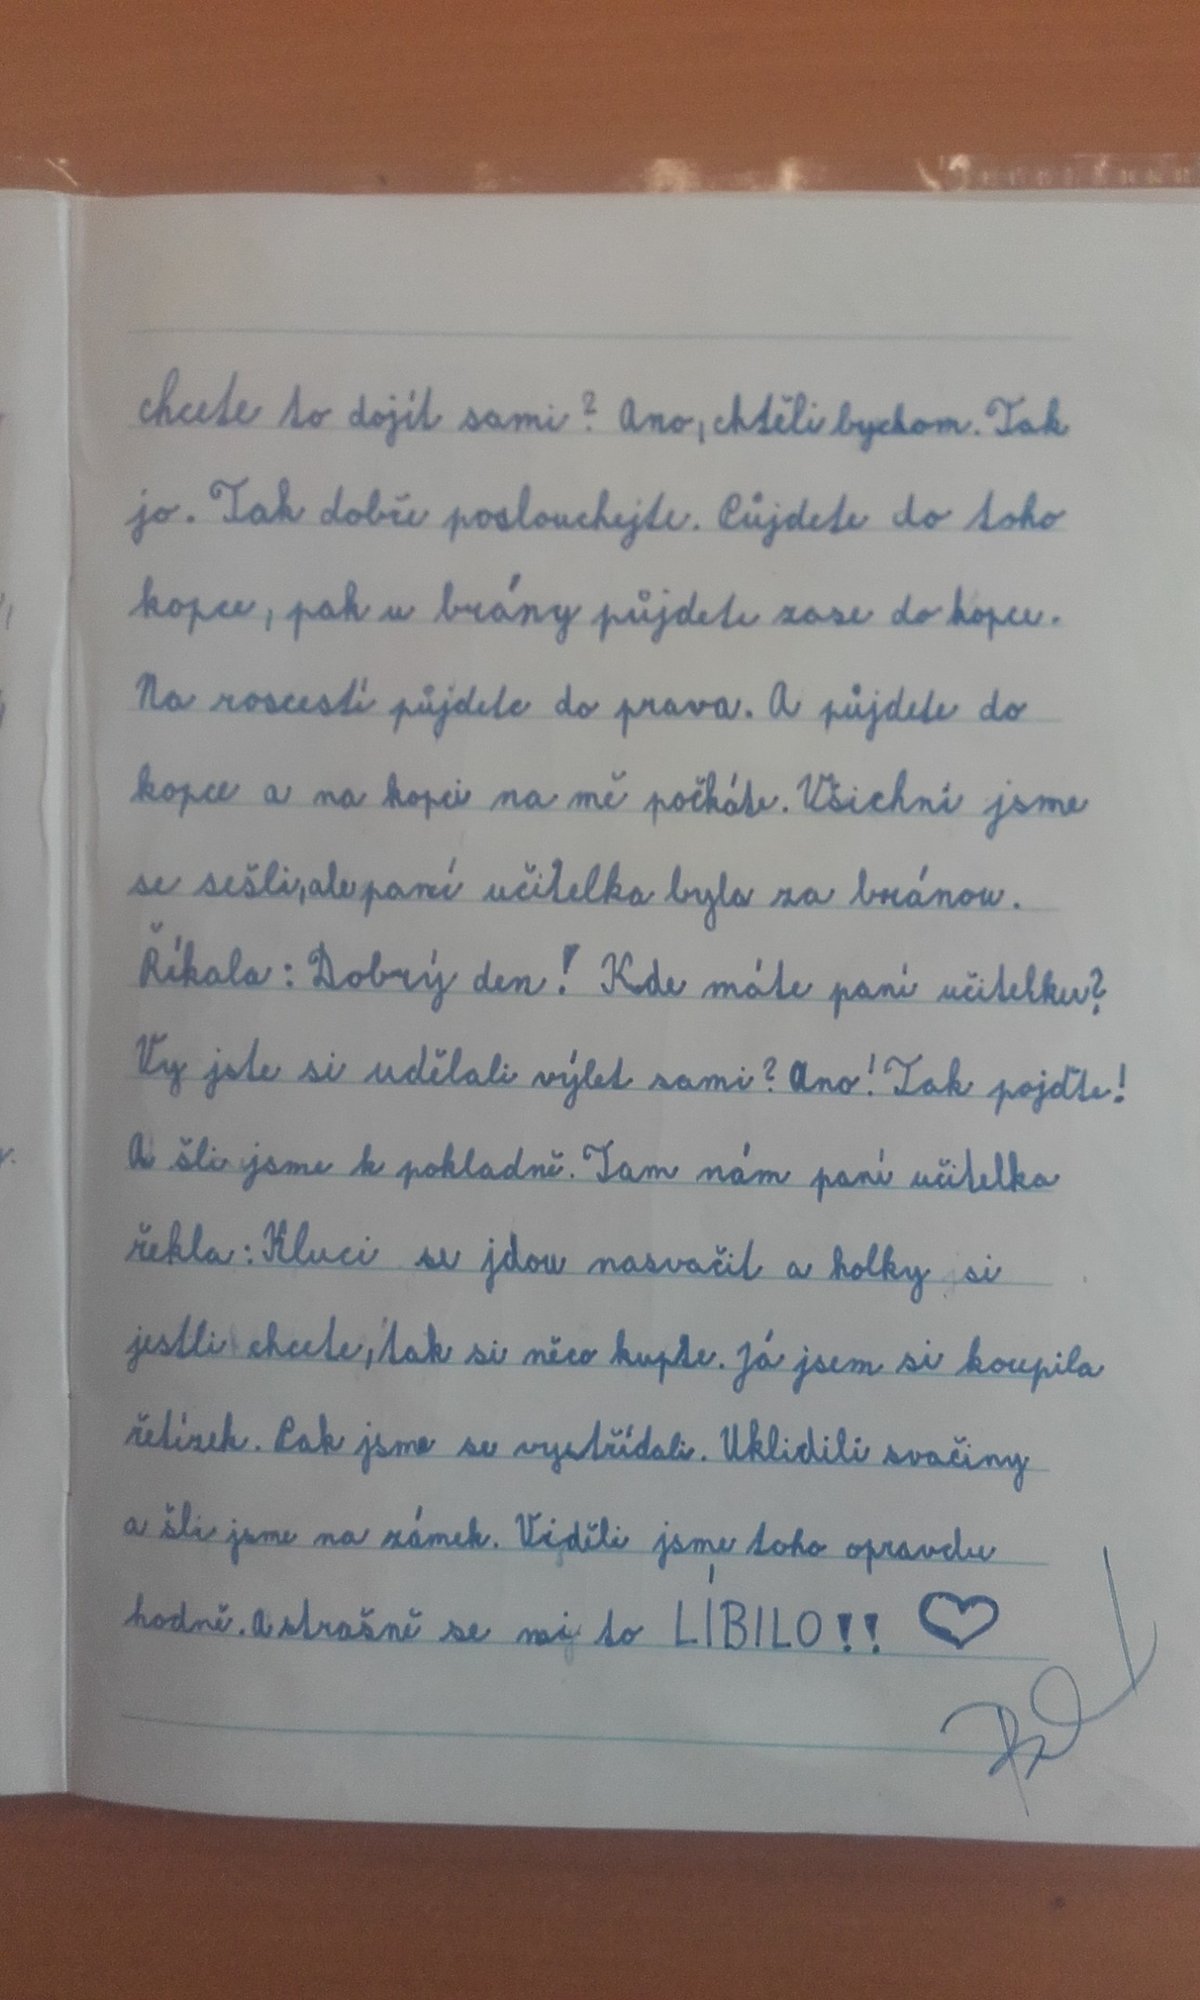 chcete to dojít sami? Ano, chtěli bychom. Tak
jo. Tak dobře poslouchejte. Půjdete do toho
kopce, pak u brány půjdete zase do kopce.
Na roscestí půjdete do prava. A půjdete do
kopce a na kopci na mě počkáte. Všichni jsme
se sešli, ale paní učitelka byla za bránou.
Říkala: Dobrý den! Kde máte paní učitelku?
Vy jste si udělali výlet sami? Ano! Tak pojďte!
A šli jsme k pokladně. Tam nám paní učitelka
řekla: Kluci se jdou nasvačit a holky si
jestli chcete, tak si něco kupte. Já jsem si koupila
řetízek. Pak jsme se vystřídali. Uklidili svačiny
a šli jsme na zámek. Viděli jsme toho opravdu
hodně. A strašně se mi to LÍBILO!!